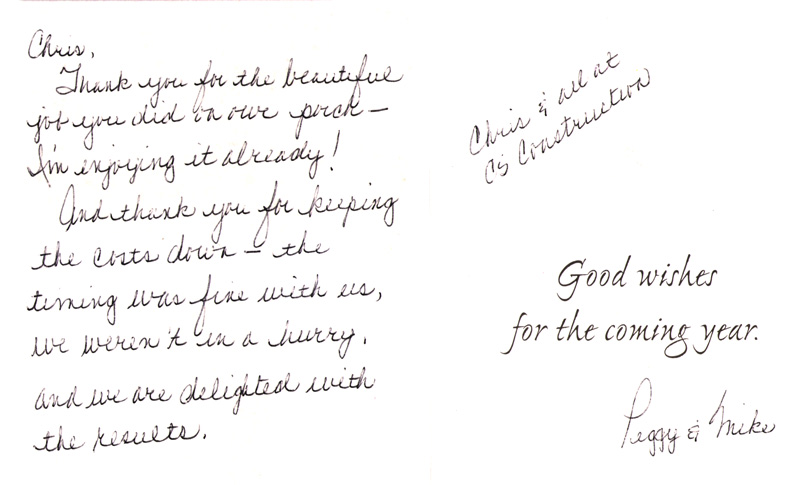 Chris,
Thank you for the beautiful
job you did on our porch —
I'm enjoying it already!
And thank you for keeping
the costs down — the
timing was fine with us,
we weren't in a hurry,
and we are delighted with
the results.
Chris & all at
CJ Construction
Good wishes
for the coming year.
Peggy & Mike